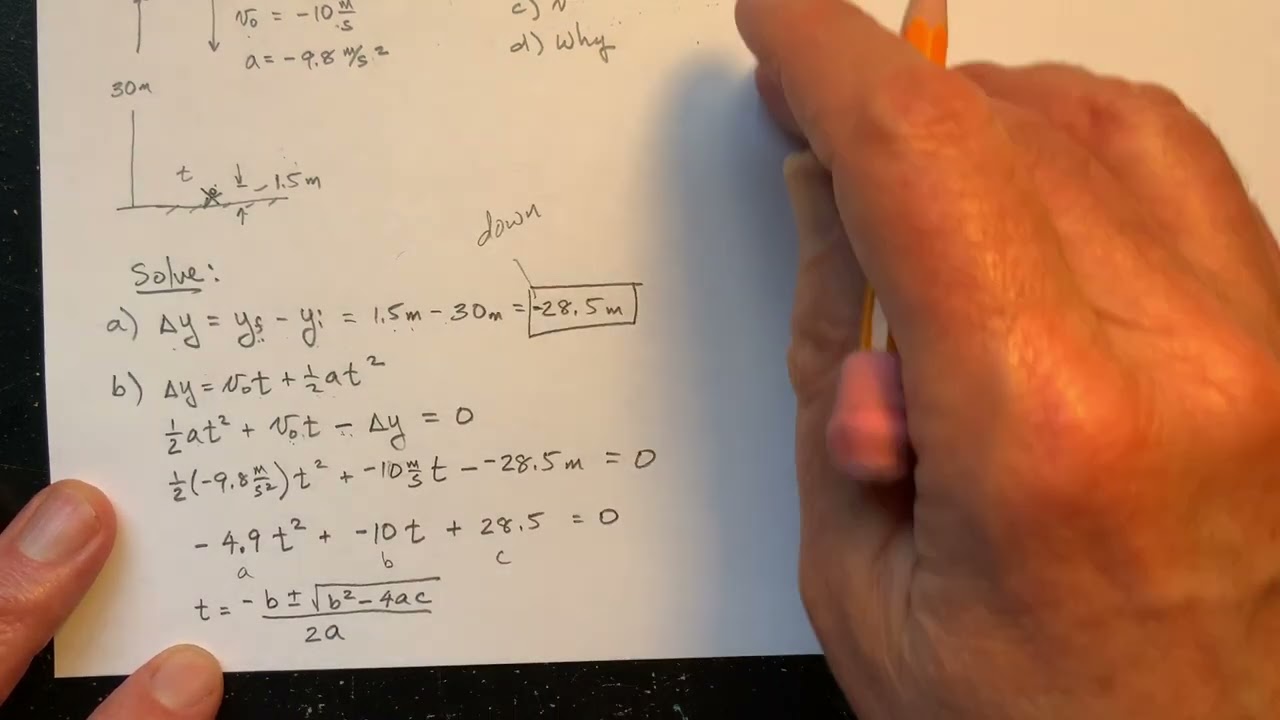 v₀ = -10 m/s
c) v
a = -9.8 m/s²
d) Why
30m
t
1.5m
down
Solve:
a) Δy = yf - yi = 1.5m - 30m = -28.5m
b) Δy = v₀t + ½at²
½at² + v₀t - Δy = 0
½(-9.8 m/s²)t² + -10 m/s t - -28.5m = 0
-4.9t² + -10t + 28.5 = 0
a b c
t = -b ± √(b² - 4ac) / 2a